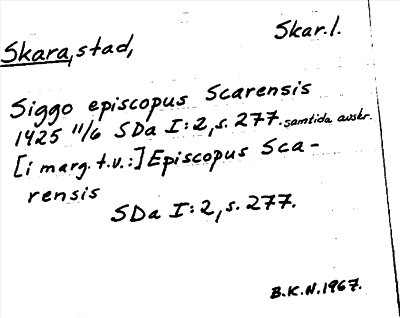 Skar.l.
Skara, stad,
Siggo episcopus Scarensis
1425 11/6 SDa I:2, s. 277. samtida avskr.
[i marg. t.v.:] Episcopus Sca-
rensis
SDa I:2, s. 277.
B.K.N. 1967.